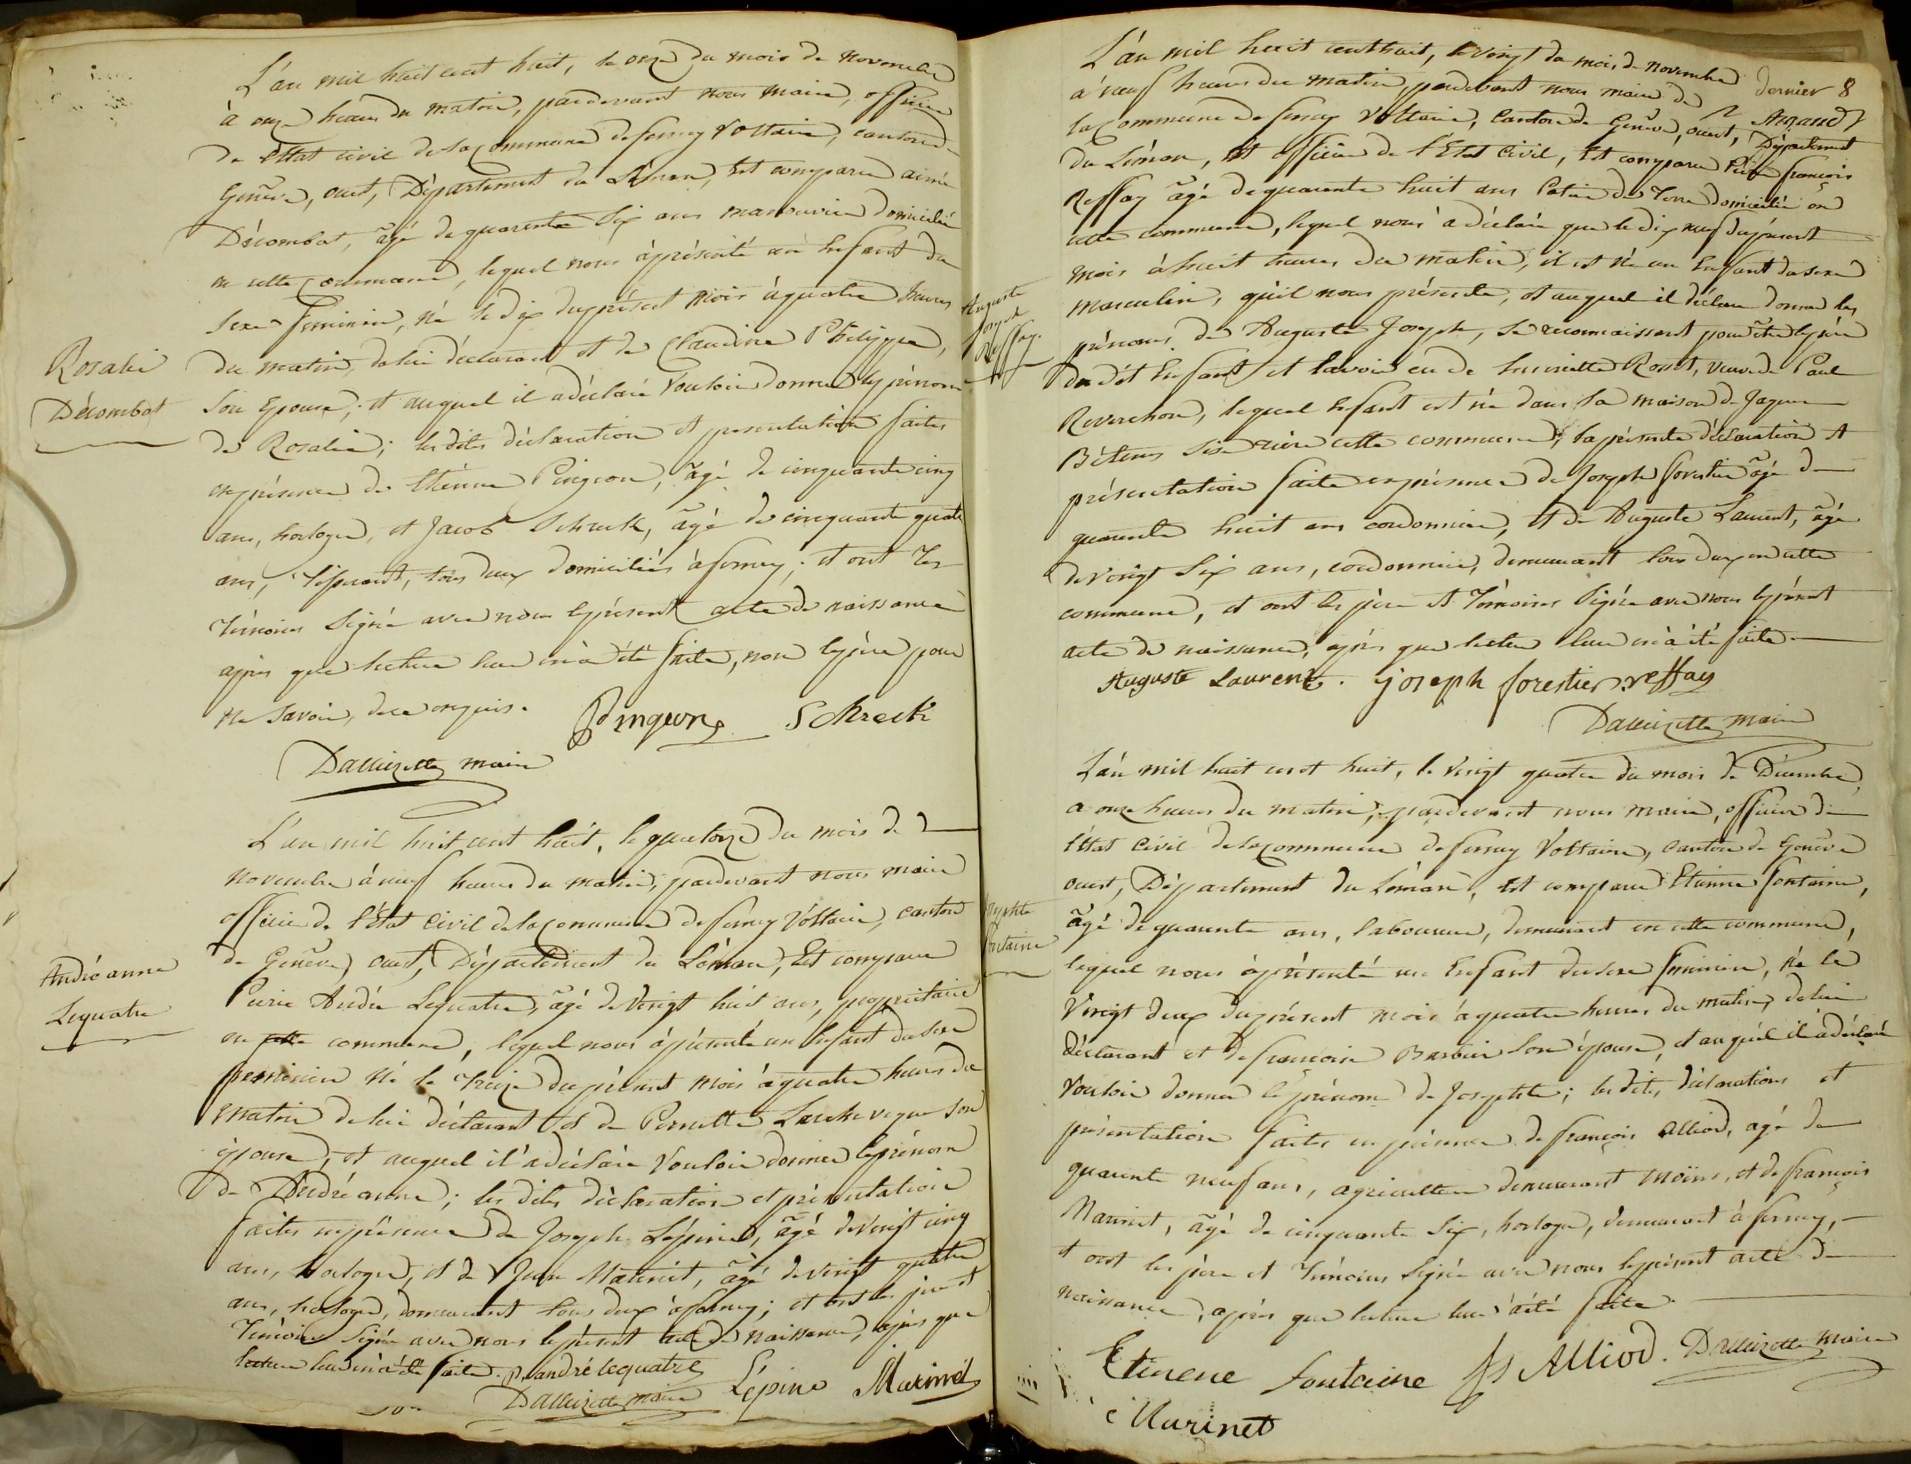 L'an mil huit cent huit, le onze du mois de novembre
à onze heures du matin, pardevant nous maire, officier
de l'Etat civil de la Commune de ferney Voltaire, canton de
Genève, ouest, Département du Léman, Est comparu aimé
Décombat, âgé de quarente six ans manouvrier domicilié
en cette commune, lequel nous à présenté un Enfant du
sexe feminin, né le dix du présent mois à quatre heures
du matin, de lui déclarant et de Claudine Philippe,
Son Epouse, et auquel il a déclaré Vouloir donner le prénom
de Rosalie; les dites déclaration et presentation faites
en présence de Etienne Pingeon, âgé de cinquante cinq
ans, horloger, et Jacob Schreck, âgé de cinquante quatre
ans, tous deux domiciliés à ferney; et ont les
Témoins Signé avec nous le présent acte de naissance
après que lecture leur en à été faite, non le père pour
ne Savoir, de ce enquis.
Pingeon Schreck
Dallizette maire
Rosalie
Décombat
L'an mil huit cent huit, le quatorze du mois de
novembre à neuf heures du matin, pardevant nous maire
officier de l'état Civil de la Commune de ferney Voltaire, canton
de Genève, ouest, Département du Léman, Est comparu
Pierre André Lequatre, âgé de Vingt huit ans, propriétaire
en cette commune, lequel nous à présenté un Enfant du sexe
feminin né le treize du présent mois à quatre heures du
matin de lui déclarant et de Pernette son
épouse, et auquel il a déclaré Vouloir donner le prénom
de Andréanne; les dites déclaration et présentation
faites en présence de Joseph Lépine, âgé de Vingt cinq
ans, horloger, et de Marinet, âgé de Vingt quatre
ans, horloger, demeurant tous deux à ferney; et ont les père et
Témoins Signé avec nous le présent acte de naissance, après que
lecture leur en à été faite. P. andré lequatre
Dallizette maire Lépine Marinet
Andréanne
Lequatre
dernier 8
L'an mil huit cent huit, le Vingt du mois de novembre
à neuf heures du matin pardevant nous maire de
la Commune de ferney Voltaire, Canton de Genève, ouest, Département
du Léman, et officier de l'Etat Civil, Est comparu Pierre françois
Reffay âgé de quarente huit ans Potier de Terre domicilié en
cette commune, lequel nous à déclaré que le dix neuf du présent
mois à huit heures du matin, il est né un Enfant du sexe
masculin, qu'il nous présente, et auquel il déclare donner les
prénoms de Auguste Joseph, Se reconnaissant pour être le père
du dit Enfant et l'avoir eu de veuve de Paul
Reverchon, lequel Enfant est né dans la maison de Jaques
Bétems Sise rière cette commune; la présente déclaration et
présentation faite en présence de Joseph forestier âgé de
quarente huit ans cordonnier, et de Auguste Laurent, âgé
de Vingt Six ans, cordonnier, demeurant tous deux en cette
commune, et ont les père et Témoins Signé avec nous le présent
acte de naissance, après que lecture leur en à été faite.
Auguste Laurent. joseph forestier reffay
Dallizette maire
Auguste
Joseph
Reffay
L'an mil huit cent huit, le Vingt quatre du mois de Décembre,
a onze heures du matin, pardevant nous maire, officier de
l'état Civil de la commune de ferney Voltaire, canton de Genève
ouest, Département du Léman, Est comparu Etienne fontaine,
âgé de quarente ans, laboureur, demeurant en cette commune,
lequel nous à présenté un Enfant du sexe feminin, né le
Vingt deux du présent mois à quatre heures du matin, de lui
déclarant et de françoise Barbier Son épouse, et auquel il à déclaré
Vouloir donner le prénom de Josephte; les dites déclarations et
présentation faites en présence de françois Alliod, agé de
quarente neuf ans, agriculteur demeurant Moëns, et de françois
Marinet, âgé de cinquante Six, horloger, demeurant à ferney,
et ont les père et Témoins Signé avec nous le présent acte de
naissance, après que lecture leur à été faite.
Etienne fontaine fs Alliod. Dallizette maire
Marinet
fontaine